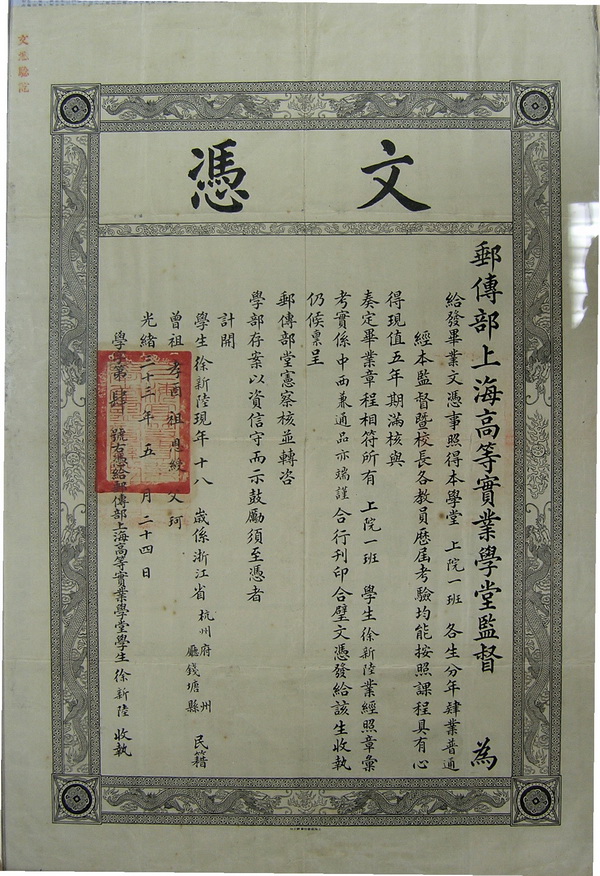 文憑
郵傳部上海高等實業學堂監督 為
給發畢業文憑事照得本學堂 上院一班 各生分年肄業普通
經本監督暨校長各教員歷屆考驗均能按照課程具有心
得現值五年期滿核與
奏定畢業章程相符所有 上院一班 學生徐新陸業經照章彙
考實係中西兼通品亦端謹 合行刊印合璧文憑發給該生收執
仍候稟呈
郵傳部堂憲察核並轉咨
學部存案以資信守而示鼓勵須至憑者
計開
學生 徐新陸現年 十八 歲係浙江省 杭州府 廳錢塘縣 州 民籍
曾祖 祖 恩綬 父 珂
光緒三十三年 五 月 二十四 日
學 第 肆 號右憑給郵傳部上海高等實業學堂學生 徐新陸 收執